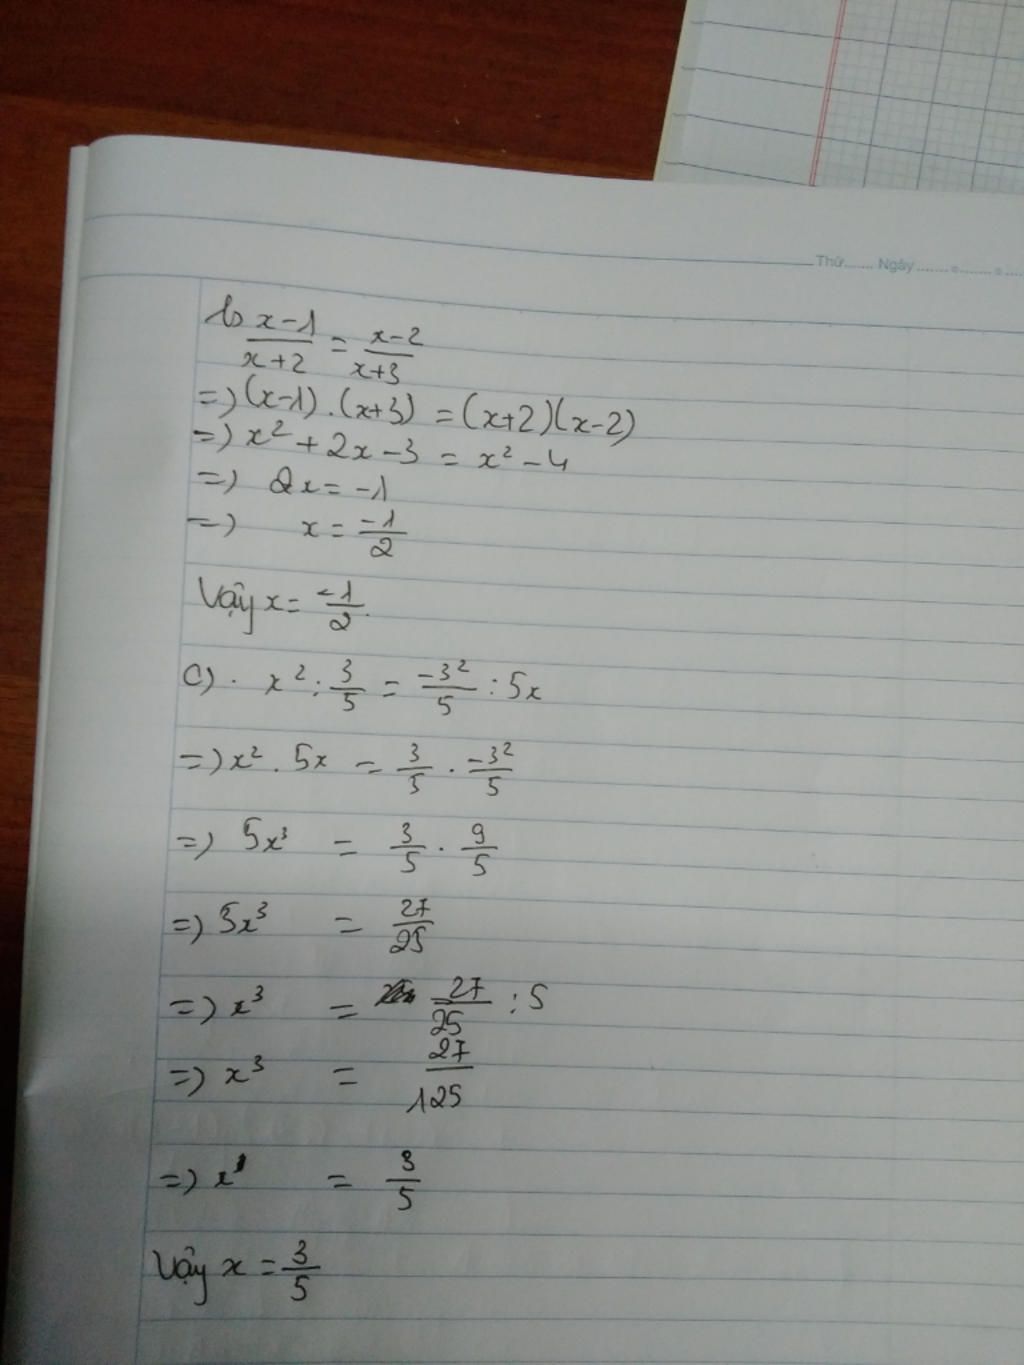 Thứ...... Ngày.......
b) \frac{x-1}{x+2} = \frac{x-2}{x+3}
=> (x-1).(x+3) = (x+2)(x-2)
=> x² + 2x - 3 = x² - 4
=> 2x = -1
=> x = \frac{-1}{2}
Vậy x = \frac{-1}{2}.
c). x² : \frac{3}{5} = \frac{-3²}{5} : 5x
=> x² . 5x = \frac{3}{5} . \frac{-3²}{5}
=> 5x³ = \frac{3}{5} . \frac{9}{5}
=> 5x³ = \frac{27}{25}
=> x³ = \frac{27}{25} : 5
=> x³ = \frac{27}{125}
=> x = \frac{3}{5}
Vậy x = \frac{3}{5}